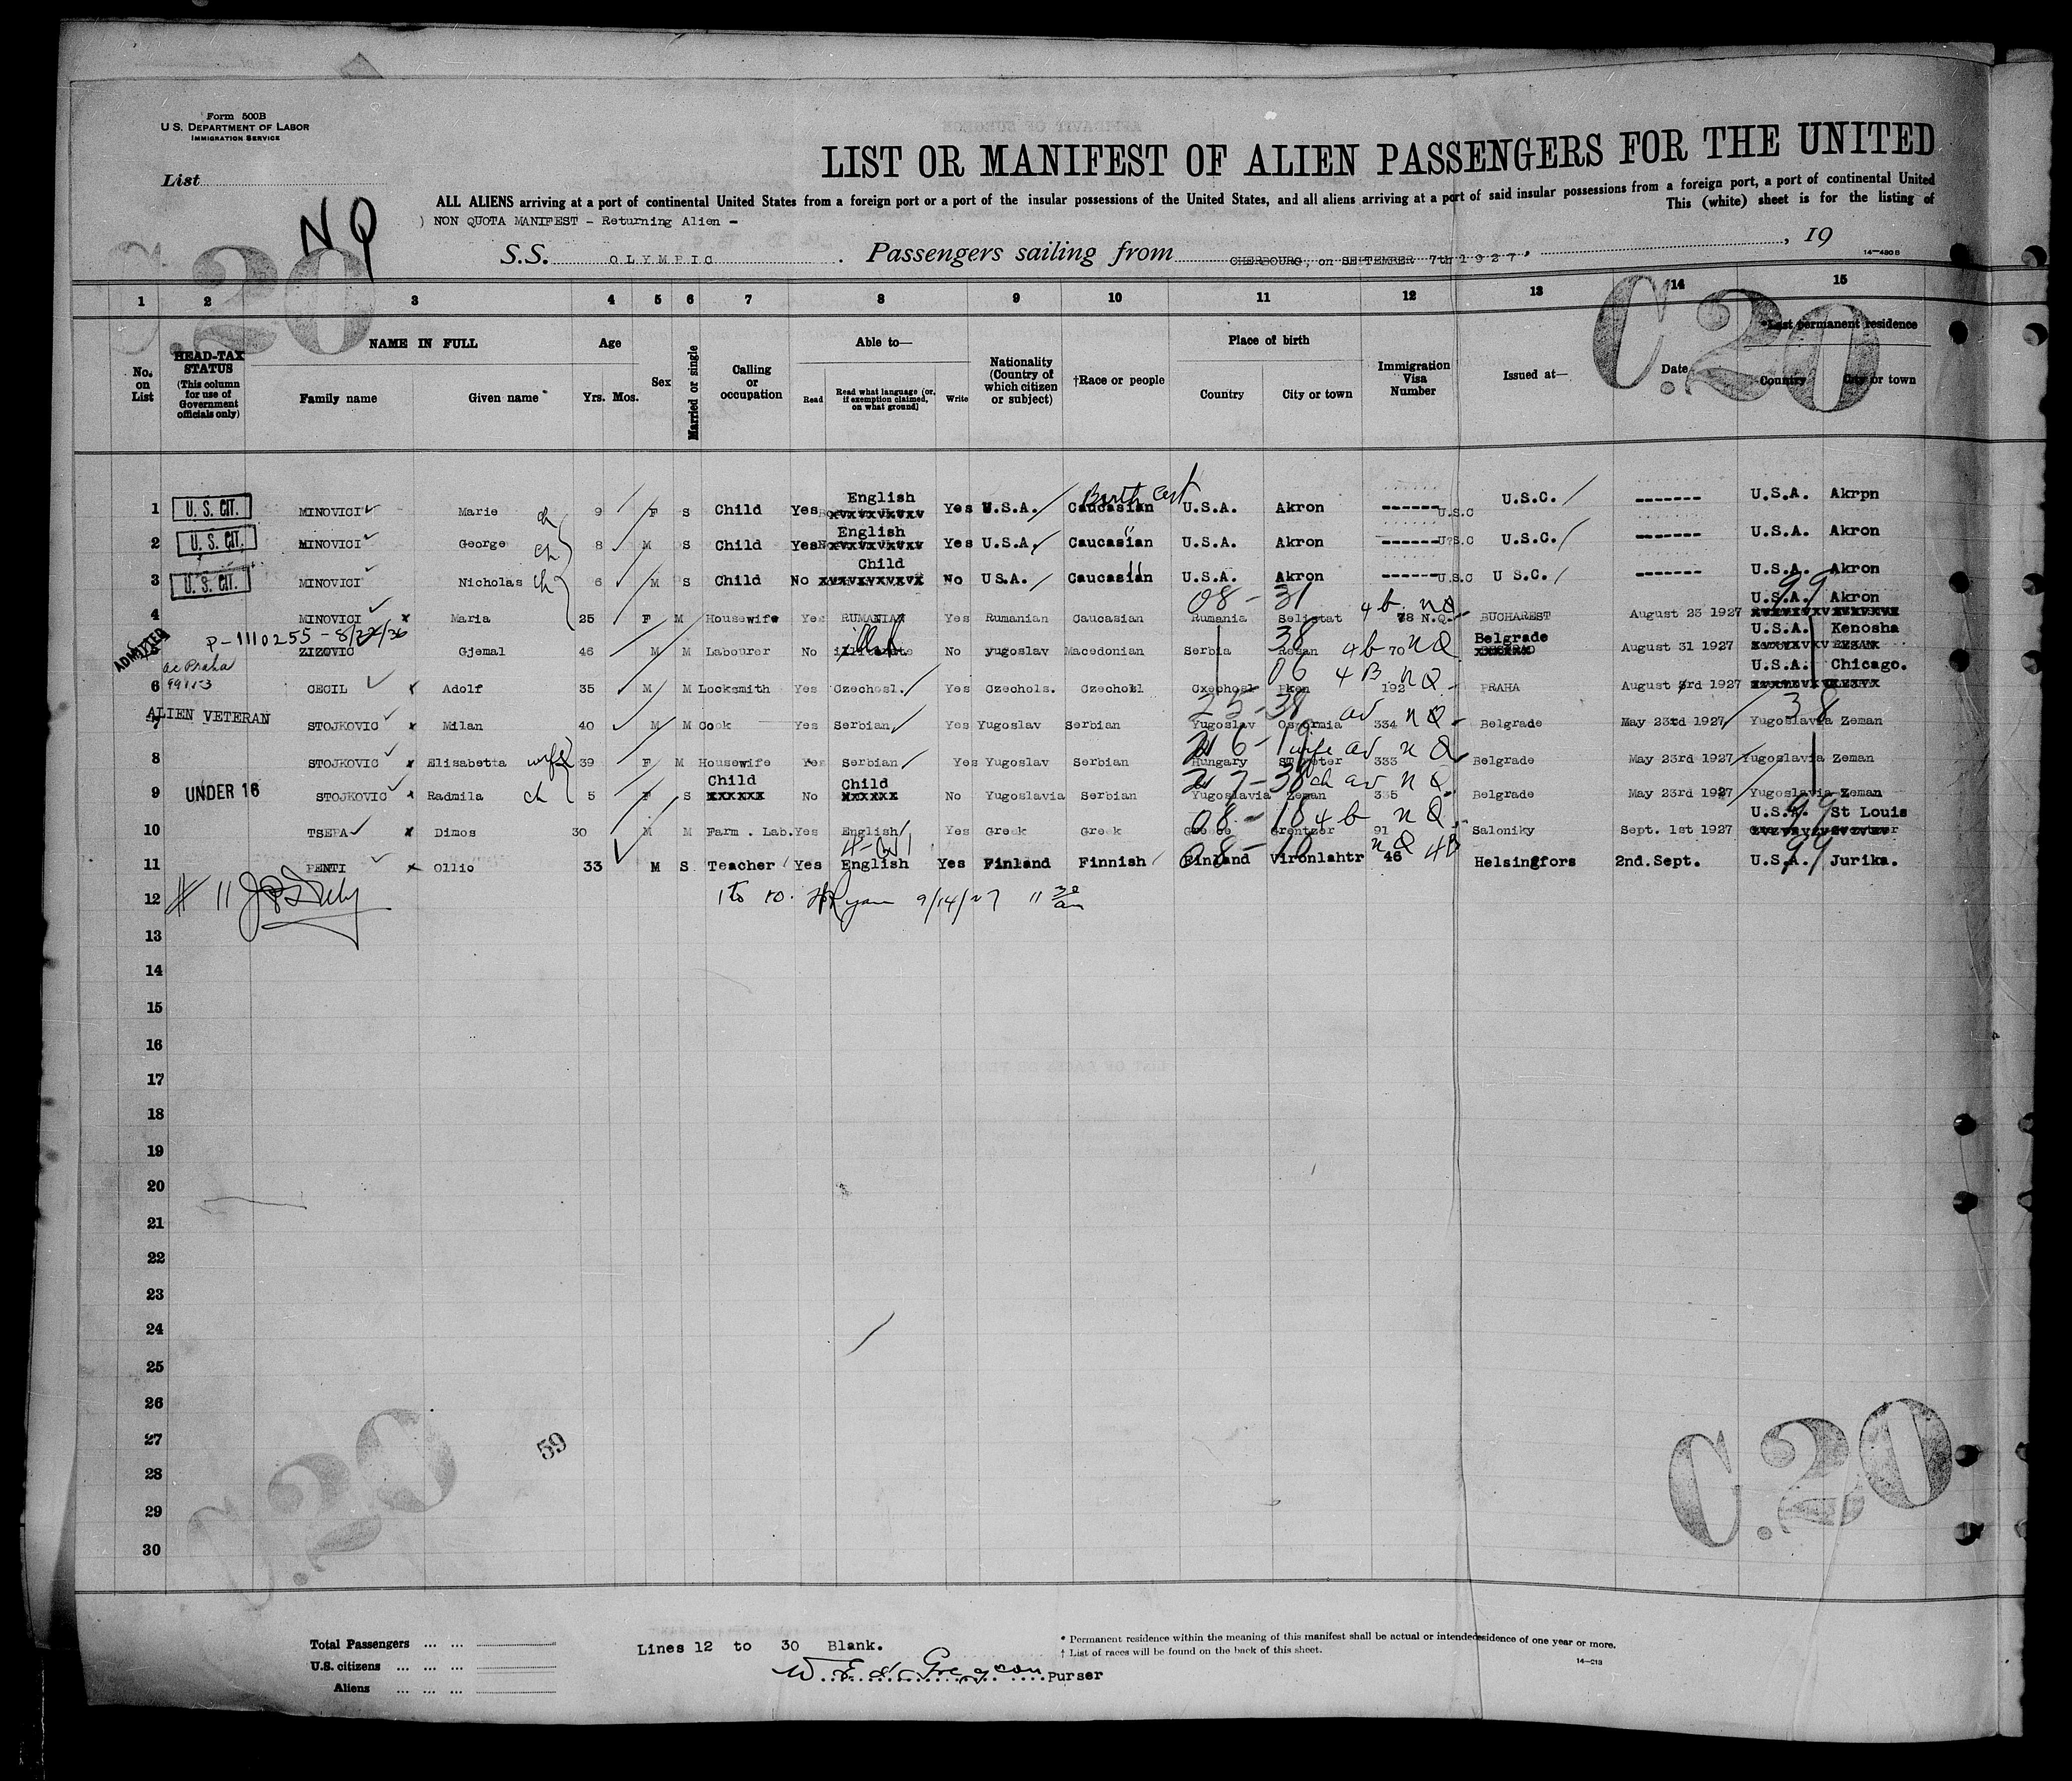 Form 500B
U.S. DEPARTMENT OF LABOR
IMMIGRATION SERVICE
List
NQ
LIST OR MANIFEST OF ALIEN PASSENGERS FOR THE UNITED
ALL ALIENS arriving at a port of continental United States from a foreign port or a port of the insular possessions of the United States, and all aliens arriving at a port of said insular possessions from a foreign port, a port of continental United
This (white) sheet is for the listing of
) NON QUOTA MANIFEST - Returning Alien -
S.S. OLYMPIC. Passengers sailing from CHERBOURG, on SEPTEMBER 7th 1927, , 19
14-480 B
C.20 C.20
1 2 3 4 5 6 7 8 9 10 11 12 13 14 15
No. on List
HEAD-TAX STATUS (This column for use of Government officials only)
NAME IN FULL
Family name Given name
Age
Yrs. Mos.
Sex
Married or single
Calling or occupation
Able to—
Read Read what language (or, if exemption claimed, on what ground) Write
Nationality (Country of which citizen or subject)
†Race or people
Place of birth
Country City or town
Immigration Visa Number
Issued at—
Date
*Last permanent residence
Country City or town
Birth Cert
1 U. S. CIT. MINOVICI Marie ch 9 F S Child Yes English Yes U.S.A. Caucasian U.S.A. Akron ------- U.S.C U.S.C. ------- U.S.A. Akrpn
2 U. S. CIT. MINOVICI George ch 8 M S Child Yes English Yes U.S.A. Caucasian U.S.A. Akron ------- U?S.C U.S.C. ------- U.S.A. Akron
3 U. S. CIT. MINOVICI Nicholas ch 6 M S Child No Child No U S.A. Caucasian U.S.A. Akron ------- U.S.C U S.C. ------- U.S.A. Akron
08-31 4b NQ 99
4 MINOVICI x Maria 25 F M Housewife Yes RUMANIAN Yes Rumanian Caucasian Rumania Selistat 78 N.Q. BUCHAREST August 23 1927 U.S.A. Akron
ADMITTED P-1110255-8/22/36
5 ZIZOVIC Gjemal 46 M M Labourer No illiterate No yugoslav Macedonian Serbia 38 4b 70 NQ Belgrade August 31 1927 U.S.A. Kenosha
ac Praha
99153
6 CECIL x Adolf 35 M M Locksmith Yes Czechosl. Yes Czechols. Czechosl 06 4B 192 NQ PRAHA August 3rd 1927 U.S.A. Chicago.
ALIEN VETERAN
7 STOJKOVIC x Milan 40 M M Cook Yes Serbian Yes Yugoslav Serbian Yugoslav 25-38 av 334 NQ Belgrade May 23rd 1927 Yugoslavia Zeman 38
8 STOJKOVIC x Elisabetta wife 39 F M Housewife Yes Serbian Yes Yugoslav Serbian Hungary 26-19 wife av 333 NQ Belgrade May 23rd 1927 Yugoslavia Zeman
9 UNDER 16 STOJKOVIC x Radmila ch 5 F S Child No Child No Yugoslavia Serbian Yugoslavia Zeman 27-38 ch av 335 NQ Belgrade May 23rd 1927 Yugoslavia Zeman
10 TSEPA x Dimos 30 M M Farm . Lab. Yes English Yes Greek Greek Greece Grentzer 08-18 4b 91 NQ Saloniky Sept. 1st 1927 U.S.A. St Louis 99
11 PENTI x Ollio 33 M S Teacher Yes English Yes Finland Finnish Finland Vironlahtr 08-10 46 NQ 4B Helsingfors 2nd.Sept. U.S.A. Jurika. 99
12 # 11 1 to 10. HRyan 9/14/27 11 30 am
13
14
15
16
17
18
19
20
21
22
23
24
25
26
27
28
29
30
59
C.20 C.20
Total Passengers
U.S. citizens
Aliens
Lines 12 to 30 Blank.
Purser
* Permanent residence within the meaning of this manifest shall be actual or intended residence of one year or more.
† List of races will be found on the back of this sheet.
14-213